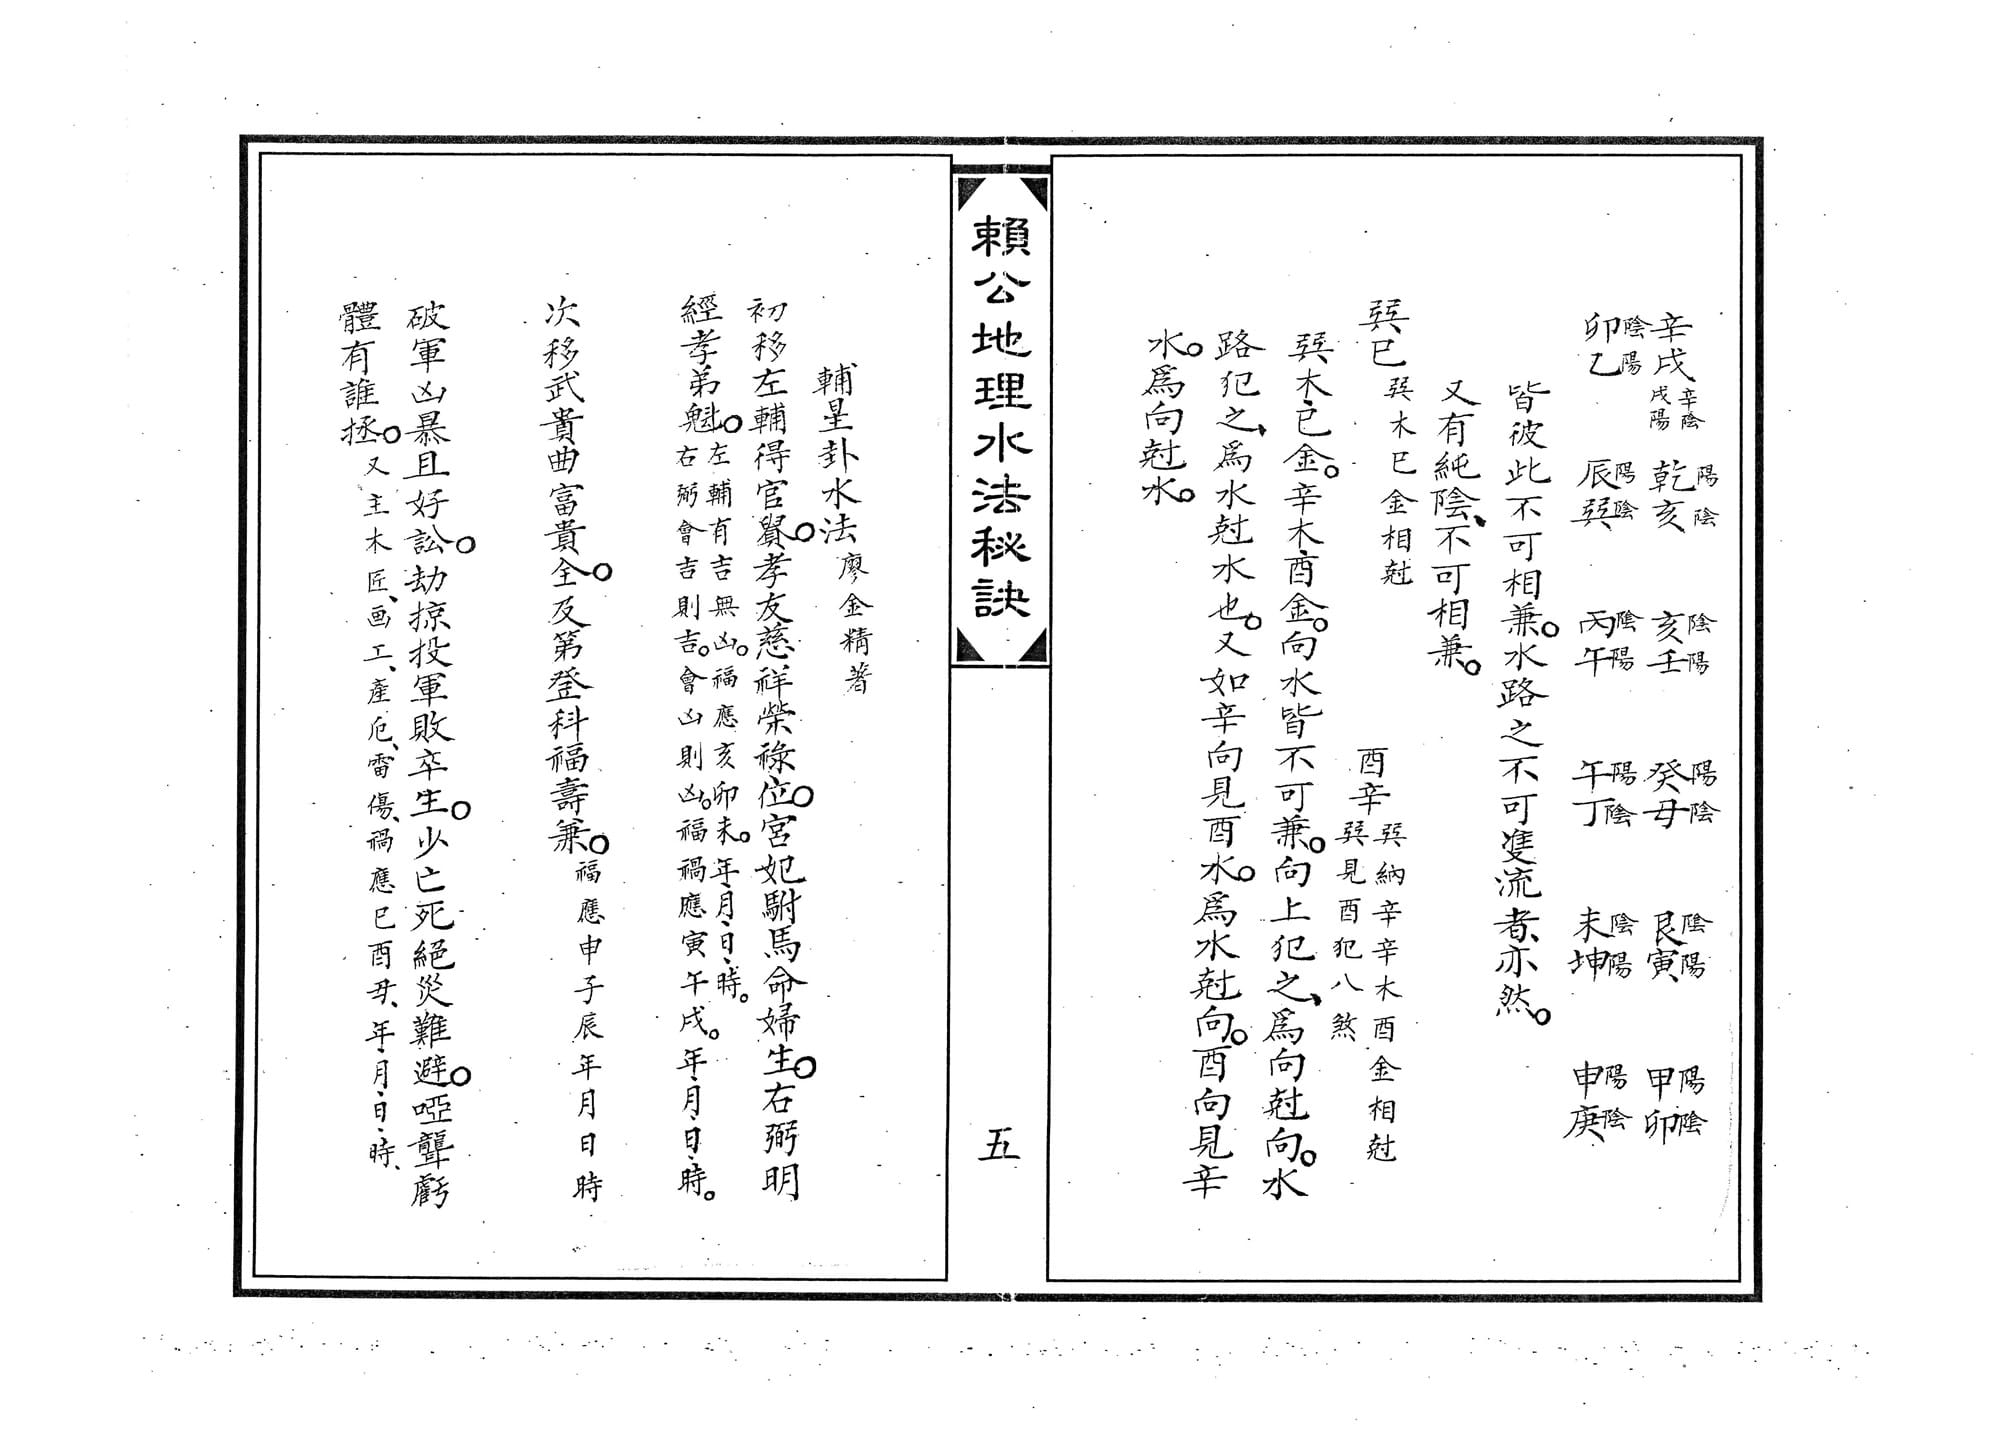 辛戌辛陰戌陽　乾陽亥陰　亥陰壬陽　癸陽丑陰　艮陰寅陽　甲陽卯陰
卯陰乙陽　辰陽巽陰　丙陰午陽　午陽丁陰　未陰坤陽　申陽庚陰
皆彼此不可相兼。水路之不可雙流者、亦然。
又有純陰、不可相兼。
巽巳巽木巳金相尅　酉辛巽納辛辛木酉金相尅
巽見酉犯八煞
巽木、巳金。辛木酉金。向水皆不可兼。向上犯之、爲向尅向。水
路犯之、爲水尅水也。又如辛向見酉水。爲水尅向。酉向見辛
水。爲向尅水。
賴公地理水法秘訣
五
輔星卦水法廖金精著
初移左輔得官貴。孝友慈祥榮祿位。宮妃駙馬命婦生。右弼明
經孝弟魁。左輔有吉無凶。福應亥卯未。年、月、日、時。
右弼會吉則吉。會凶則凶。福禍應寅午戌。年、月、日、時。
次移武貴曲富貴全。及第登科福壽兼。福應申子辰年月日時
破軍凶暴且好訟。劫掠投軍敗卒生。少亡死絕災難避。啞聾虧
體有誰拯。又主木匠、画工、產厄、雷傷、禍應巳酉丑、年、月、日、時、